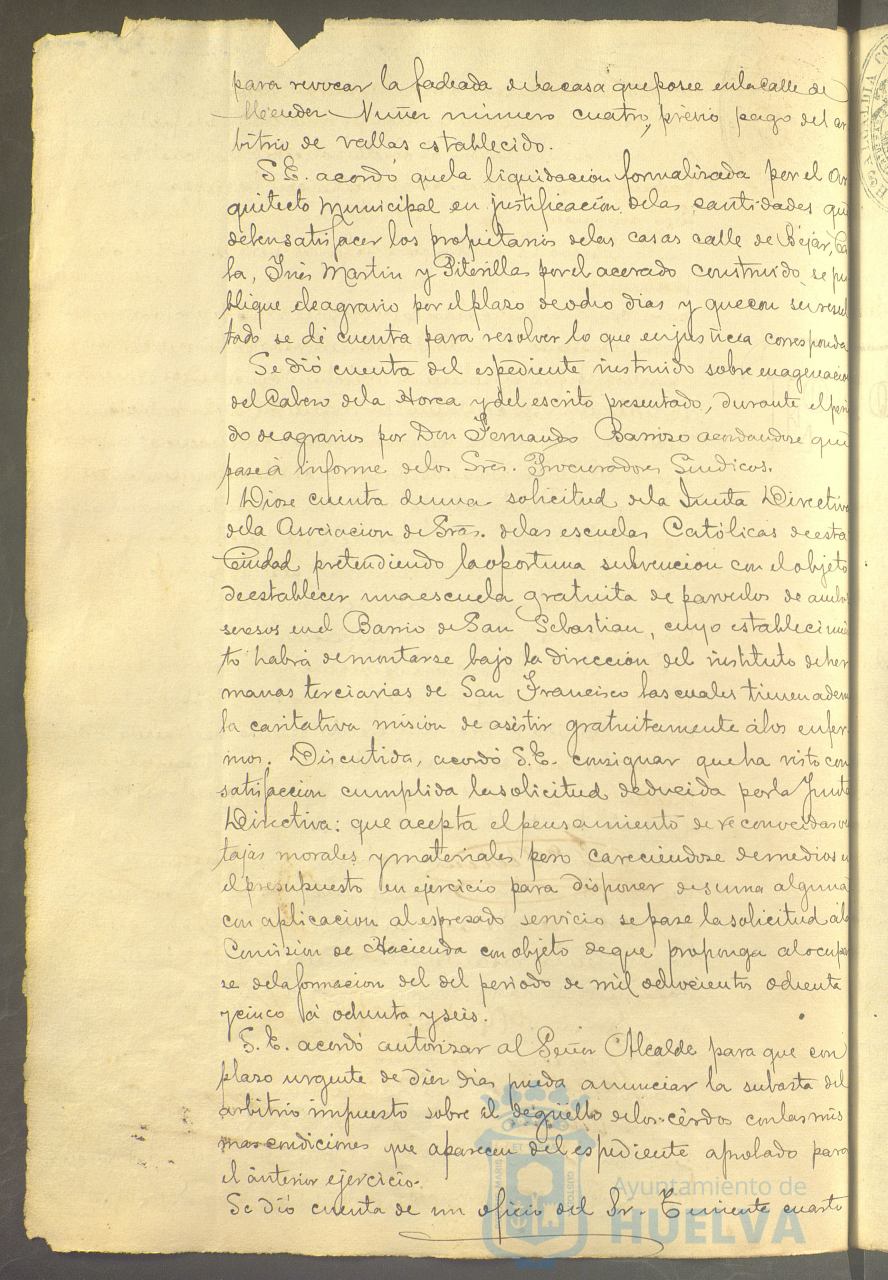 para revocar la fachada de la casa que posee en la calle de
Mendez Nuñez número cuatro, prévio pago del ar
bitrio de vallas establecido.
S.E. acordó que la liquidacion formalizada por el Ar
quitecto Municipal en justificacion de las cantidades que
deben satisfacer los propietarios de las casas calle de Béjar, Ca
la, Inés Martin y Piterillas por el acerado construido se pu
blique de agravio por el plazo de ocho dias y que con su resul
tado se dé cuenta para resolver lo que en justicia corresponda
Se dió cuenta del espediente instruido sobre enagenacion
del Cabezo de la Horca y del escrito presentado, durante el perio
do de agravios por Don Fernando Barroso acordandose que
pase á informe de los Sres. Procuradores Síndicos.
Diose cuenta de una solicitud de la Junta Directiva
de la Asociacion de Sras. de las escuelas Católicas de esta
Ciudad pretendiendo la oportuna subvencion con el objeto
de establecer una escuela gratuita de parvulos de ambos
secsos en el Barrio de San Sebastian, cuyo establecimien
to habrá de montarse bajo la dirección del instituto de her
manas terciarias de San Francisco las cuales tienen además
la caritativa mision de asistir gratuitamente á los enfer
mos. Discutida, acordó S.E. consignar que ha visto con
satisfaccion cumplida la solicitud deducida por la Junta
Directiva: que acepta el pensamiento de reconocidas ven
tajas morales y materiales pero careciéndose de medios en
el presupuesto en ejercicio para disponer de suma alguna
con aplicacion al espresado servicio se pase la solicitud á la
Comision de Hacienda con objeto de que proponga al ocupar
se de la formacion del del periodo de mil ochocientos ochenta
y cinco á ochenta y seis.
S.E. acordó autorizar al Señor Alcalde para que con
plazo urgente de diez dias pueda anunciar la subasta del
arbitrio impuesto sobre el degüello de los cerdos con las mis
mas condiciones que aparecen del espediente aprobado para
el anterior ejercicio.
Se dió cuenta de un oficio del Sr. Teniente cuarto
Ayuntamiento de
HUELVA